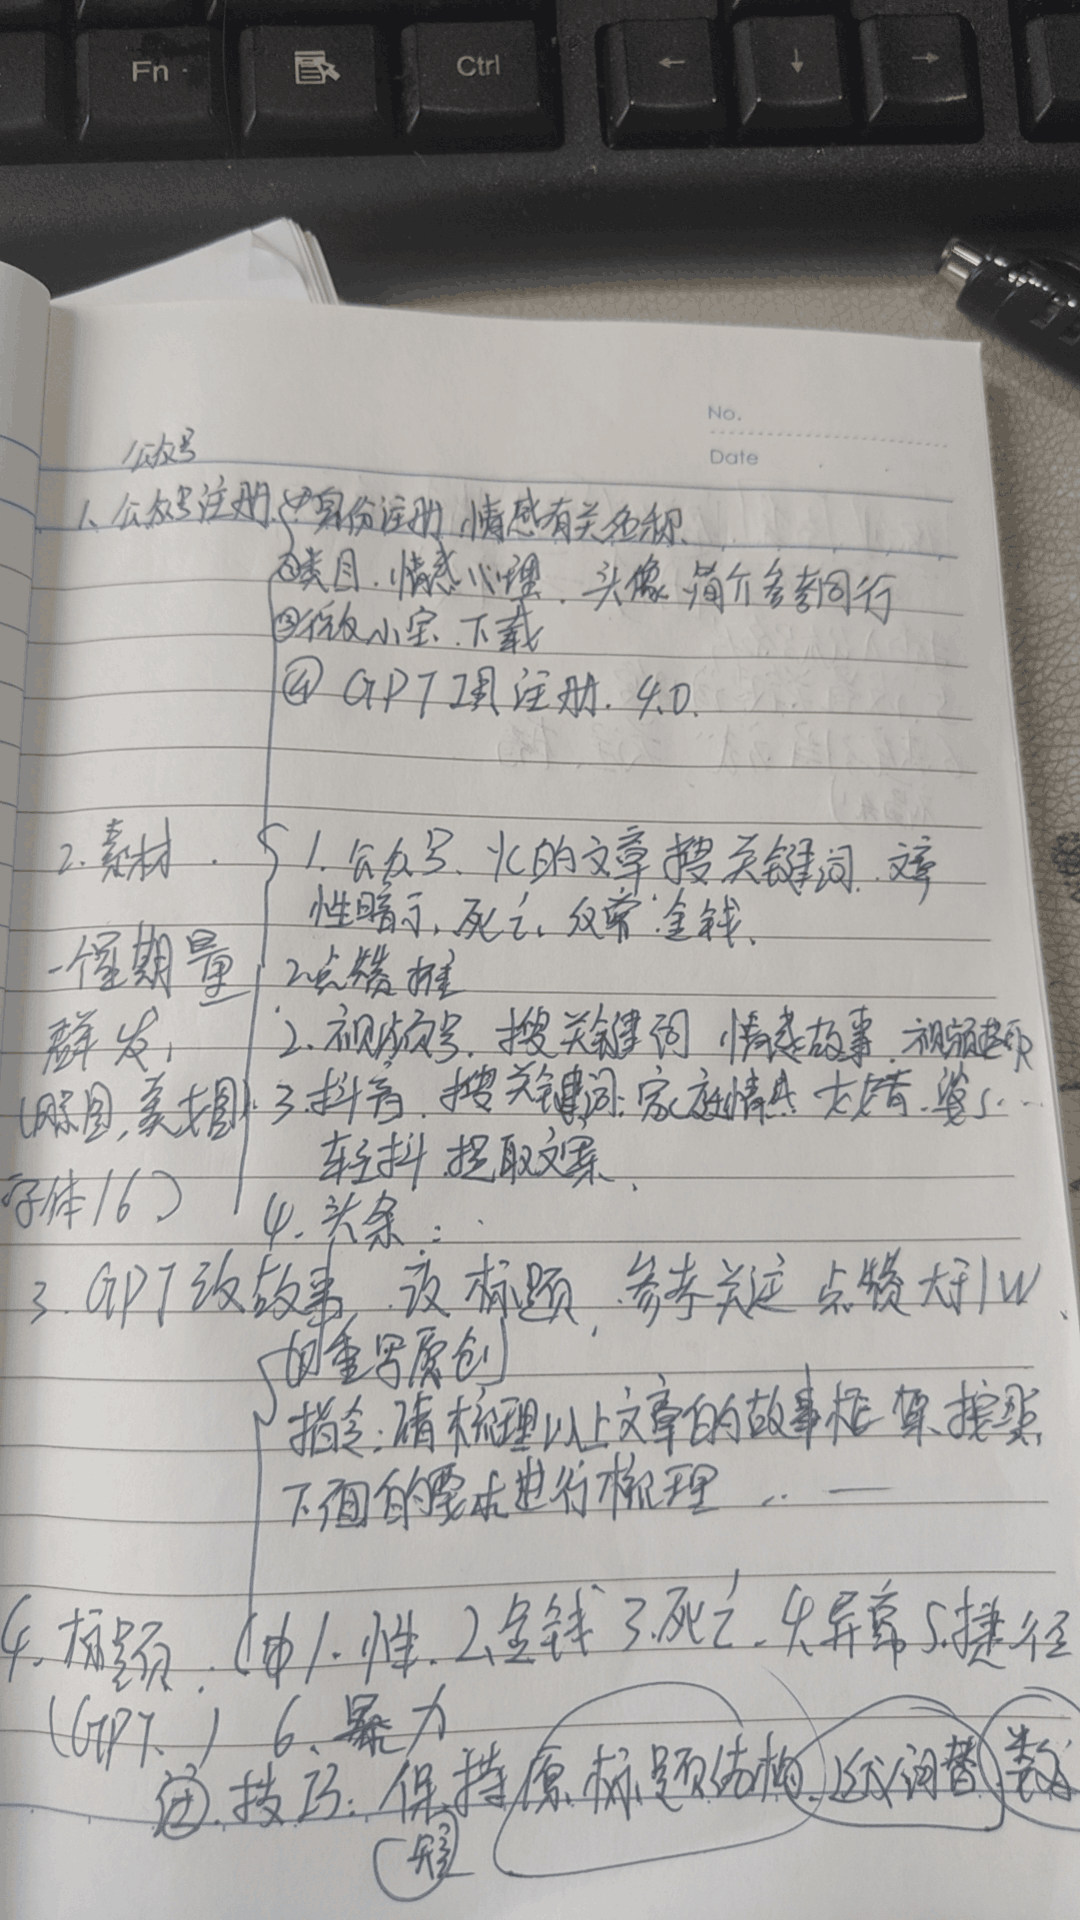 Fn
Ctrl
←
↓
→
No.
Date
公众号
1、公众号注册 ①身份注册,情感有关名称.
②类目.情感心理.头像 简介参考同行
③微小宝.下载
④ GPT工具注册. 4.0.
2.素材. 1.公众号、火的文章搜关键词.文章
性暗示,死亡、反常 金钱、
一个星期量 2.点赞
群发, 2.视频号.搜关键词 情感故事.视频
(原图,美图) 3.抖音.搜关键词:家庭情感 婆
轻抖.提取文案、
字体16) 4.头条:
3.GPT改故事,改标题,参考关注 点赞大于1W
重写原创
指令:请梳理以上文章的故事框架.按照
下面的要求进行梳理 .. —
4.标题. 1.性.2.金钱 3.死亡.4.异常 5.捷径
(GPT、) 6.暴力
技巧:保持原标题结构.近义词替 数